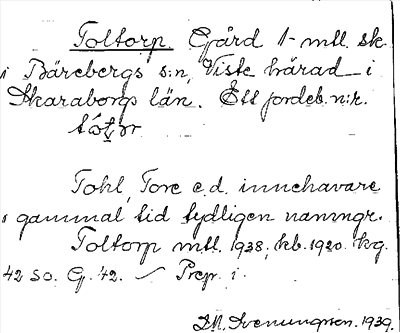 Toltorp. Gård 1 mtl. sk.
i Bärebergs s:n, Viste härad i
Skaraborgs län. Ett jordeb.n:r.
Tohl, Tore e.d. innehavare
i gammal tid tydligen namngr.
Toltorp mtl. 1938, kb. 1920. kg.
42 SO. G. 42. Prep. i.
D.M. Svenungsson. 1939.